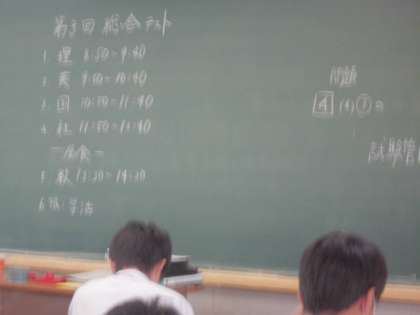 第3回 総合テスト
1. 理 8:50~9:40
2. 英 9:50~10:40
3. 国 10:50~11:40
4. 社 11:50~12:40
昼食
5. 数 13:30~14:20
6. 学活
問題
4 (4) ①
試験管